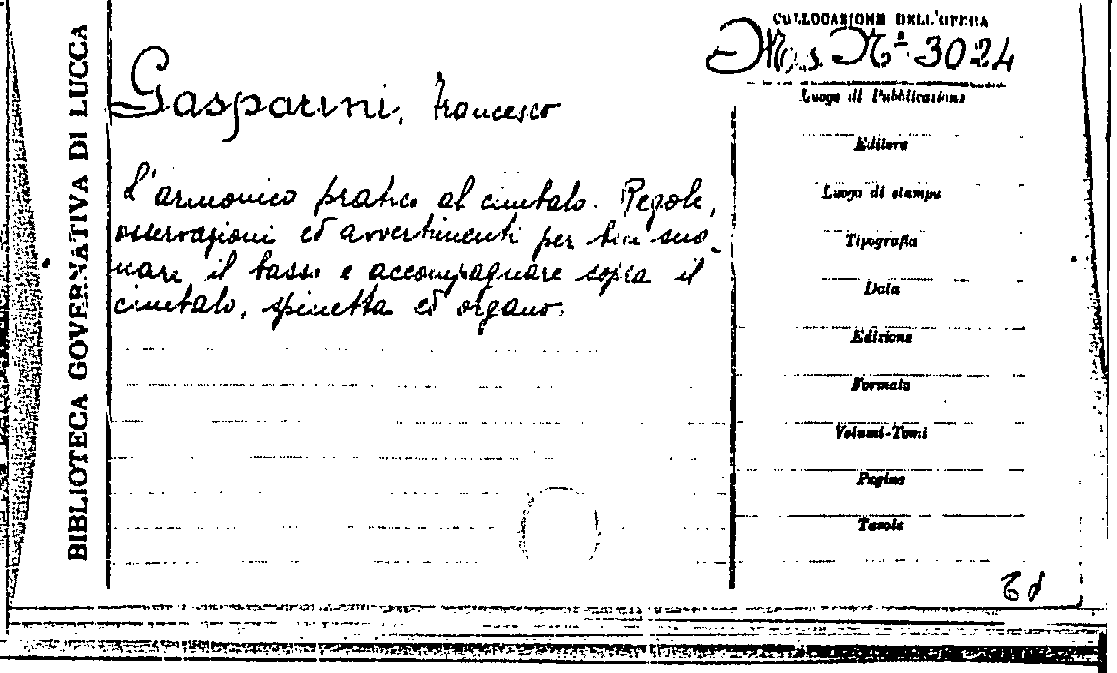 BIBLIOTECA GOVERNATIVA DI LUCCA
Gasparini, Francesco
L'armonico pratico al cimbalo. Regole,
osservazioni ed avvertimenti per ben suo-
nare il basso e accompagnare sopra il
cimbalo, spinetta ed organo.
COLLOCAZIONE DELL'OPERA
Mss. Nº 3024
Luogo di Pubblicazione
Editore
Luogo di stampa
Tipografia
Data
Edizione
Formato
Volumi-Tomi
Pagine
Tavole